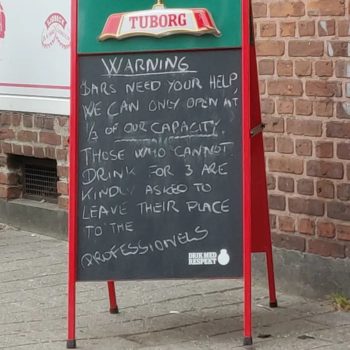 TUBORG
WARNING
BARS NEED YOUR HELP,
WE CAN ONLY OPEN AT
1/3 OF OUR CAPACITY.
THOSE WHO CANNOT
DRINK FOR 3 ARE
KINDLY ASKED TO
LEAVE THEIR PLACE
TO THE
PROFESSIONELS
DRIK MED
RESPEKT